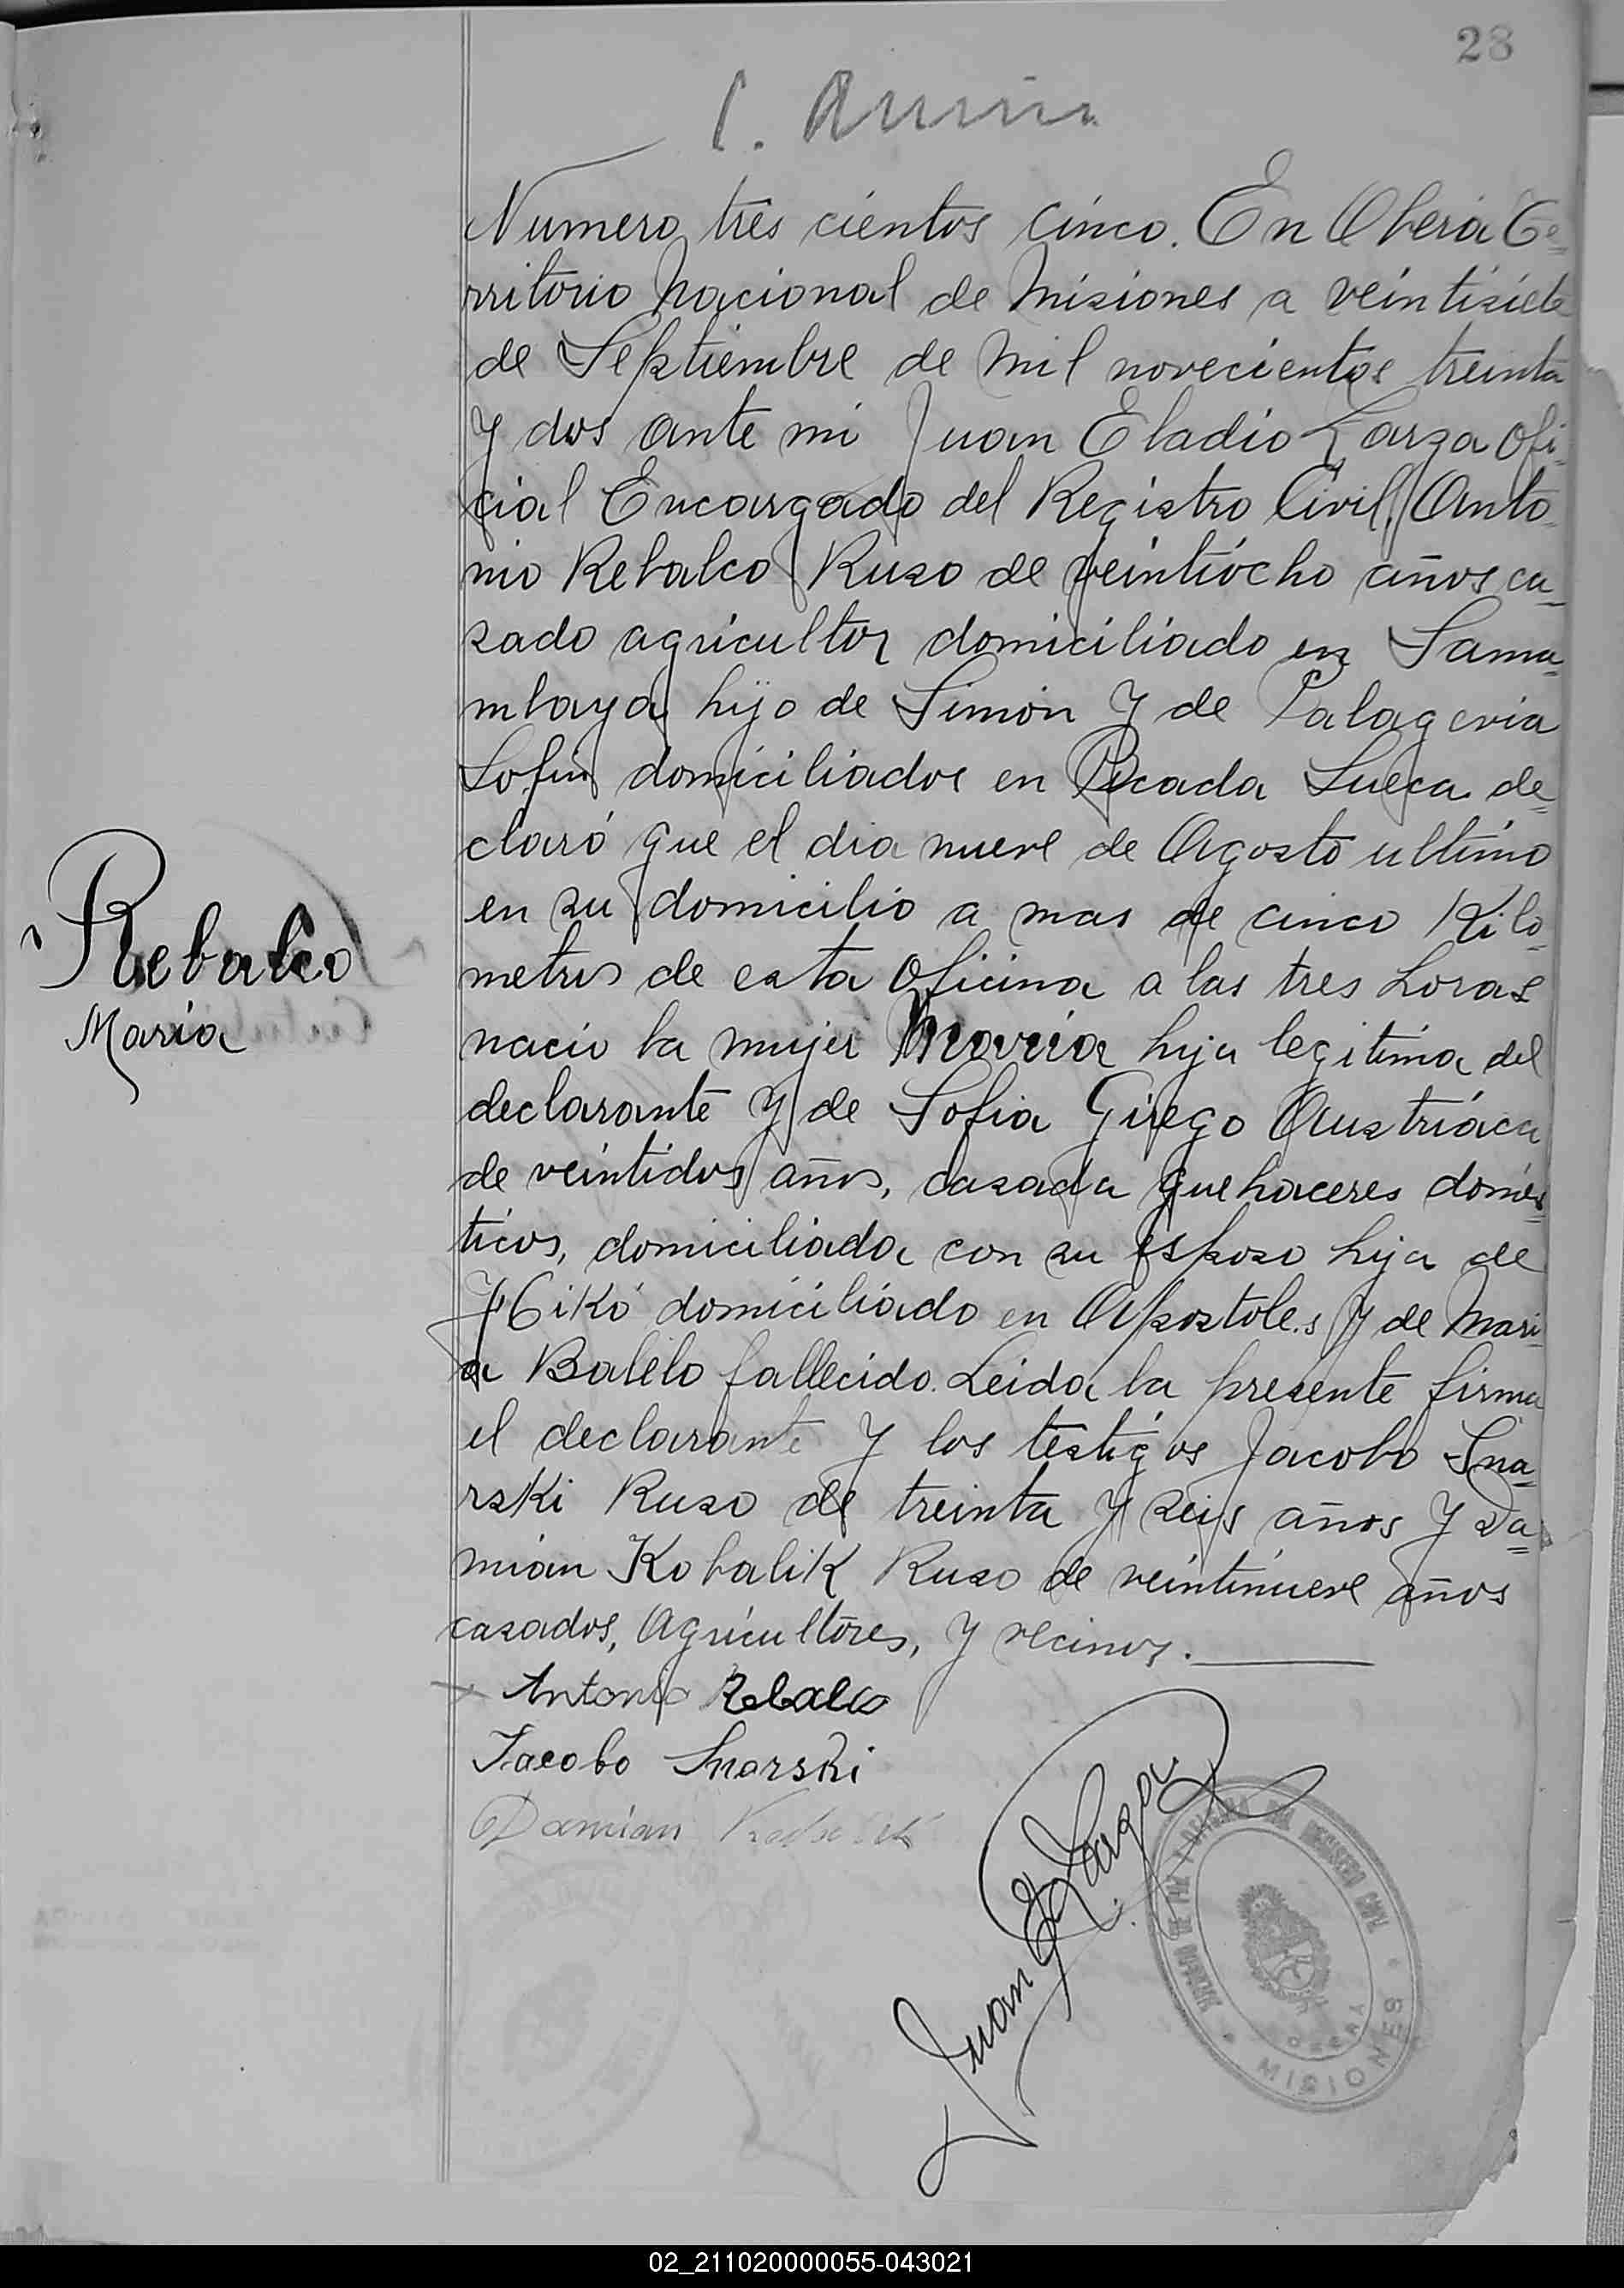 28
Numero tres cientos cinco. En Oberá Te=
rritorio Nacional de Misiones a veintisiete
de Septiembre de mil novecientos treinta
y dos ante mi Juan Eladio Zarza Ofi-
cial Encargado del Registro Civil, Anto-
nio Rebalco Ruso de veintiocho años ca-
sado agricultor domiciliado en Sama-
mbaya hijo de Simón y de Palageria
Sofin domiciliados en Picada Sueca de=
claró que el dia nueve de Agosto ultimo
en su domicilio a mas de cinco Kilo-
metros de esta Oficina a las tres horas
nacio la mujer Maria hija legitima del
declarante y de Sofia Giego Austriaca
de veintidos años, casada quehaceres domes=
ticos, domiciliada con su esposo hija de
domiciliado en Apostoles y de Mari-
a Balelo fallecido. Leida la presente firma
el declarante y los testigos Jacobo Sna=
rski Ruso de treinta y seis años y Da=
mián Kobalik Ruso de veintinueve años
casados, Agricultores, y vecinos.
Rebalco
Maria
Antonio Rebalco
Jacobo Snarski
Damian Kobalik
Juan E Zarza
REGISTRO CIVIL
OBERA
MISIONES
02_211020000055-043021